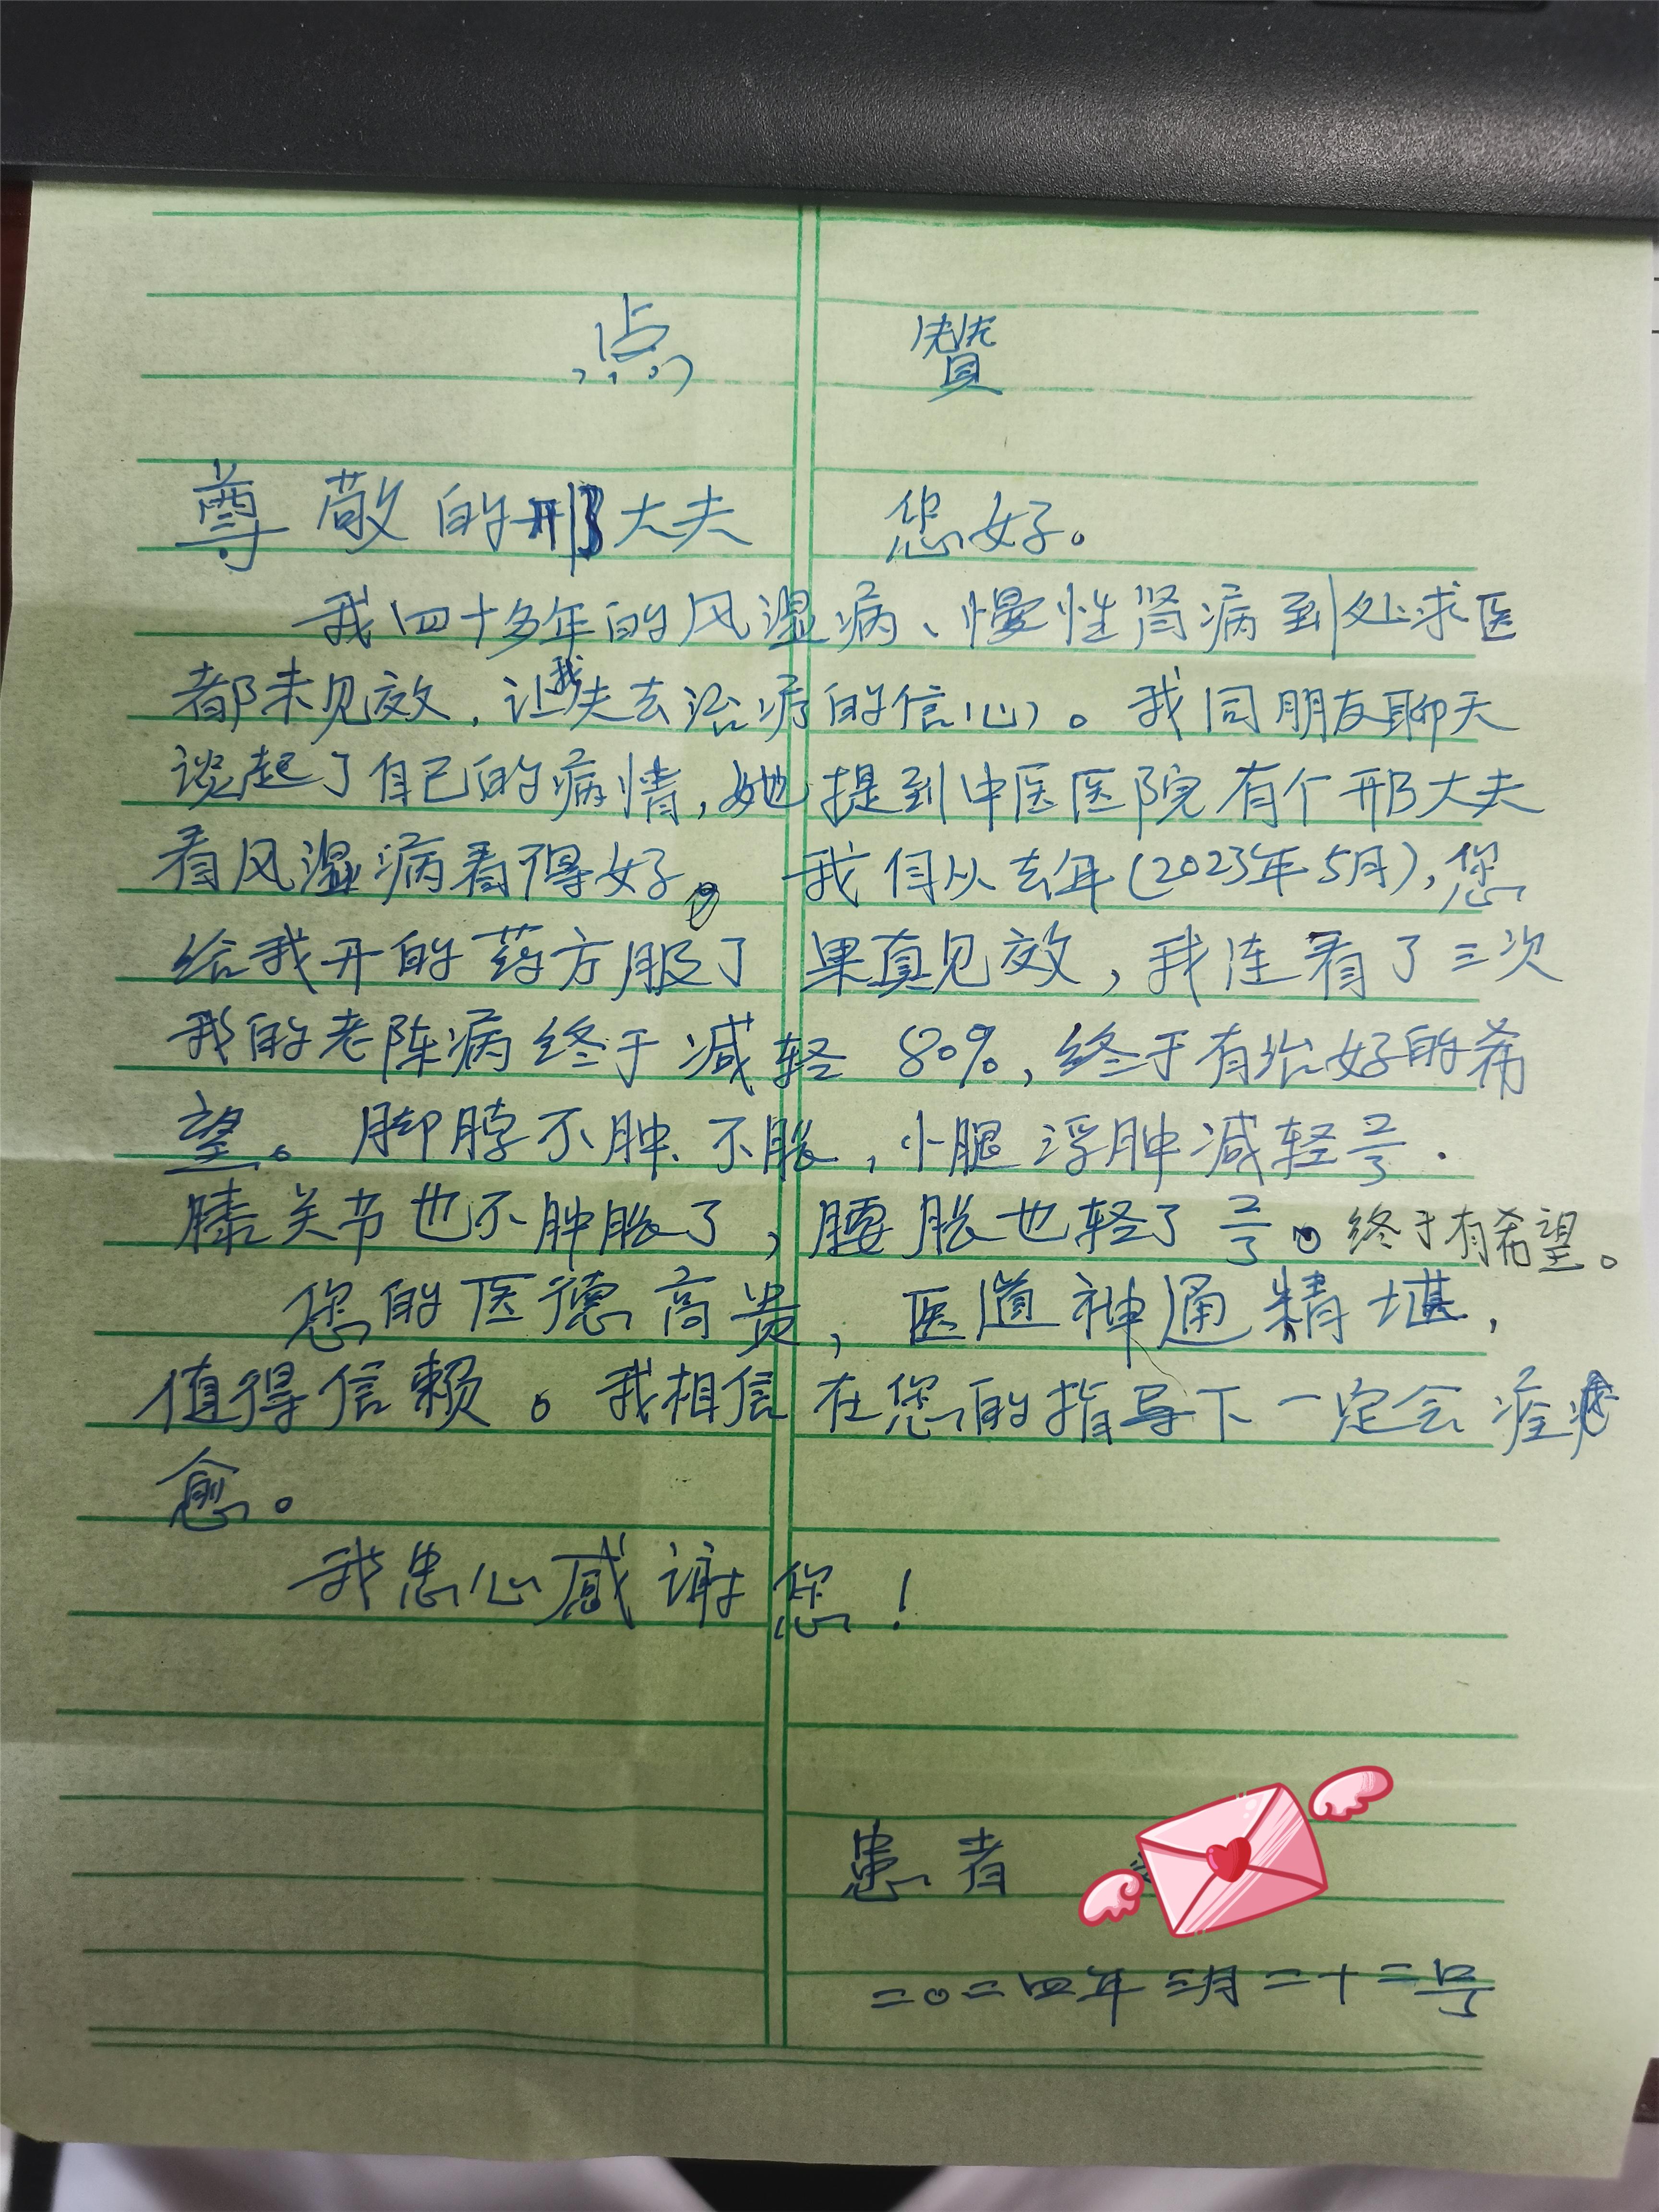 点 赞
尊敬的邢大夫 您好。
我四十多年的风湿病、慢性肾病到处求医
都未见效，让我失去治疗的信心。我同朋友聊天
谈起了自己的病情，她提到中医医院有个邢大夫
看风湿病看得好。我自从去年(2023年5月)，您
给我开的药方服了果真见效，我连看了三次
我的老陈病终于减轻80%，终于有治好的希
望。脚脖不肿、不胀，小腿浮肿减轻
膝关节也不肿胀了，腰胀也轻了 。终于有希望。
您的医德高贵，医道神通精堪，
值得信赖。我相信在您的指导下一定会痊
愈。
我忠心感谢您！
患者
二〇二四年三月二十二号